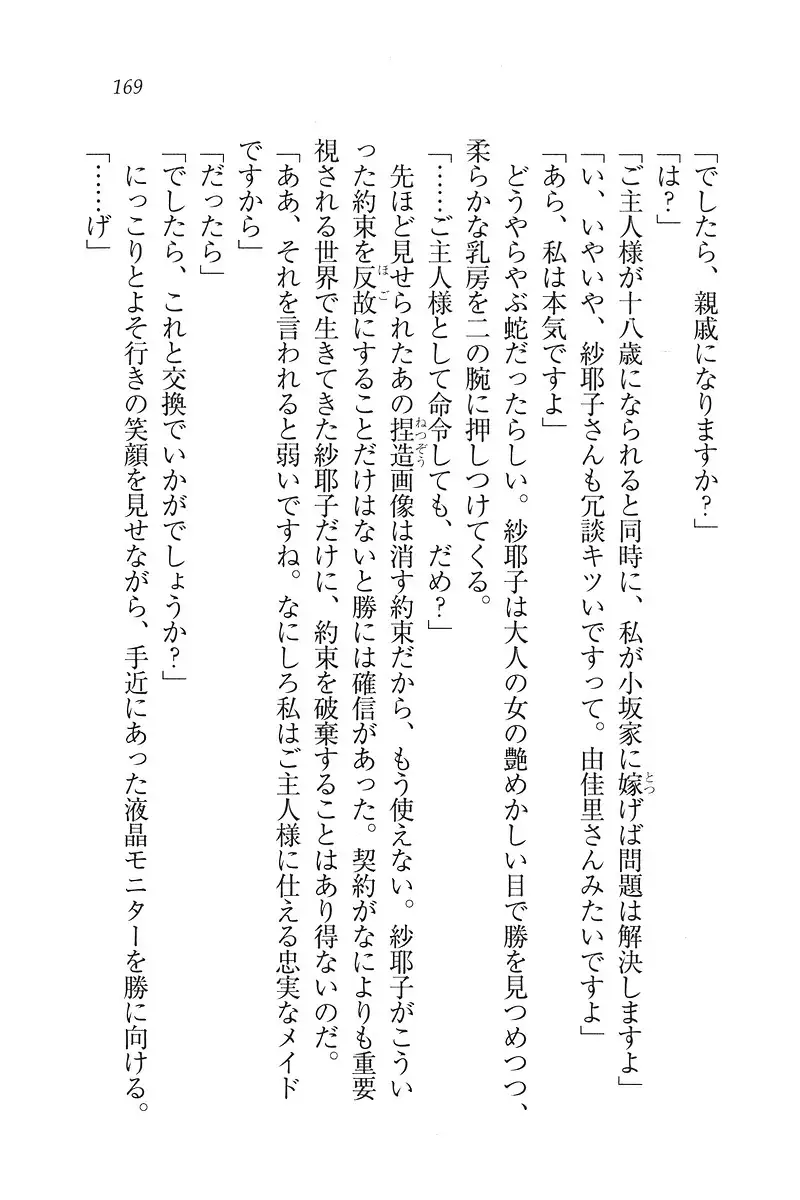 169
「でしたら、親戚になりますか?」
「は?」
「ご主人様が十八歳になられると同時に、私が小坂家に嫁げば問題は解決しますよ」
「い、いやいや、紗耶子さんも冗談キツいですって。由佳里さんみたいですよ」
「あら、私は本気ですよ」
どうやらやぶ蛇だったらしい。紗耶子は大人の女の艶めかしい目で勝を見つめつつ、
柔らかな乳房を二の腕に押しつけてくる。
「……ご主人様として命令しても、だめ?」
先ほど見せられたあの捏造画像は消す約束だから、もう使えない。紗耶子がこうい
った約束を反故にすることだけはないと勝には確信があった。契約がなによりも重要
視される世界で生きてきた紗耶子だけに、約束を破棄することはあり得ないのだ。
「ああ、それを言われると弱いですね。なにしろ私はご主人様に仕える忠実なメイド
ですから」
「だったら」
「でしたら、これと交換でいかがでしょうか?」
にっこりとよそ行きの笑顔を見せながら、手近にあった液晶モニターを勝に向ける。
「……げ」